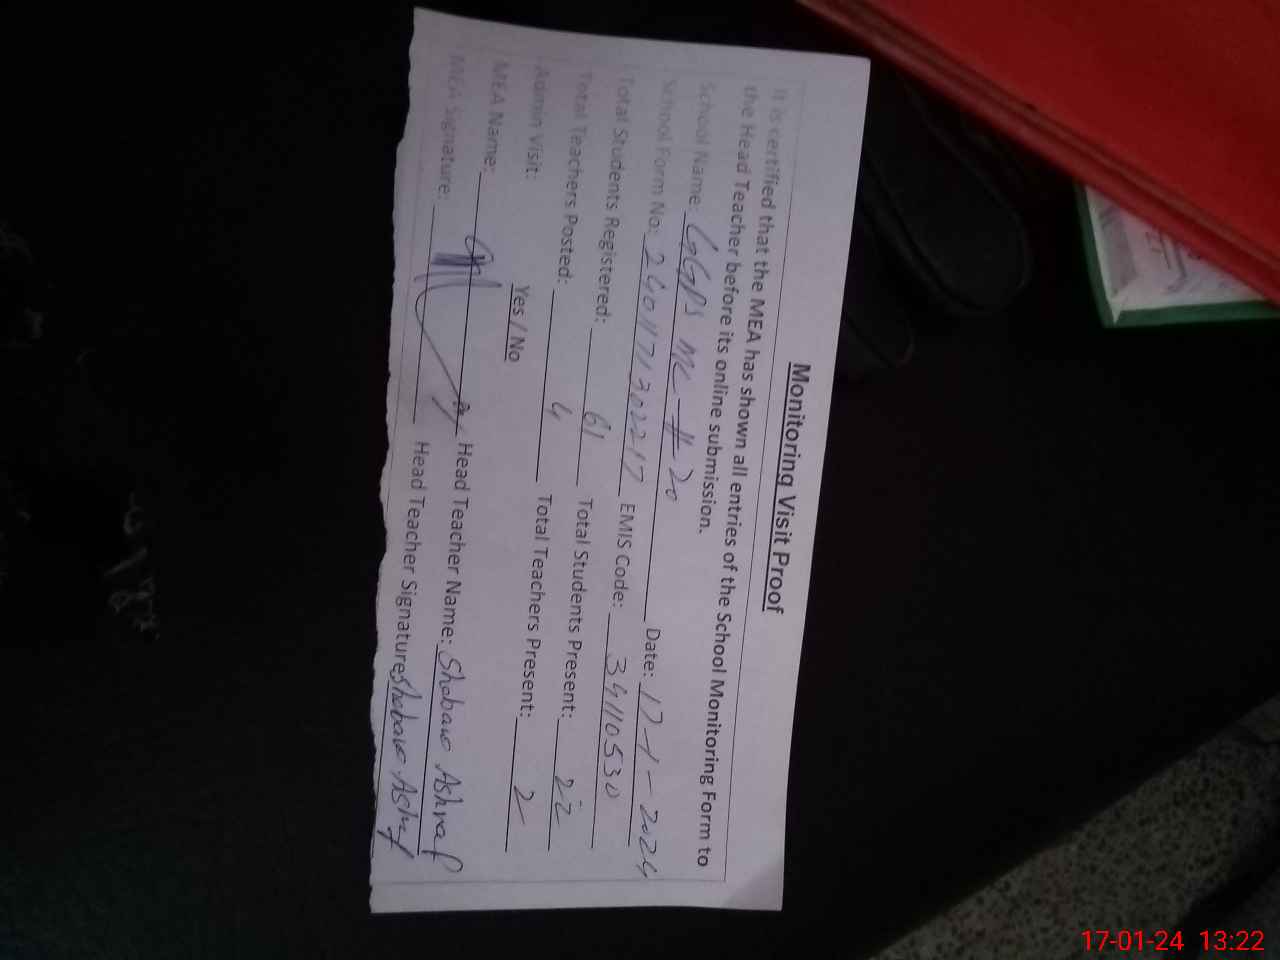 Monitoring Visit Proof
It is certified that the MEA has shown all entries of the School Monitoring Form to
the Head Teacher before its online submission.
School Name: GGPS MC-#-20 Date: 17-1-2024
School Form No: 24011713022217 EMIS Code: 34110530
Total Students Registered: 61 Total Students Present: 22
Total Teachers Posted: 4 Total Teachers Present: 2
Admin Visit: Yes / No
MEA Name: Head Teacher Name: Shabano Ashraf
MEA Signature: Head Teacher Signature: Shabano Ashraf
17-01-24 13:22